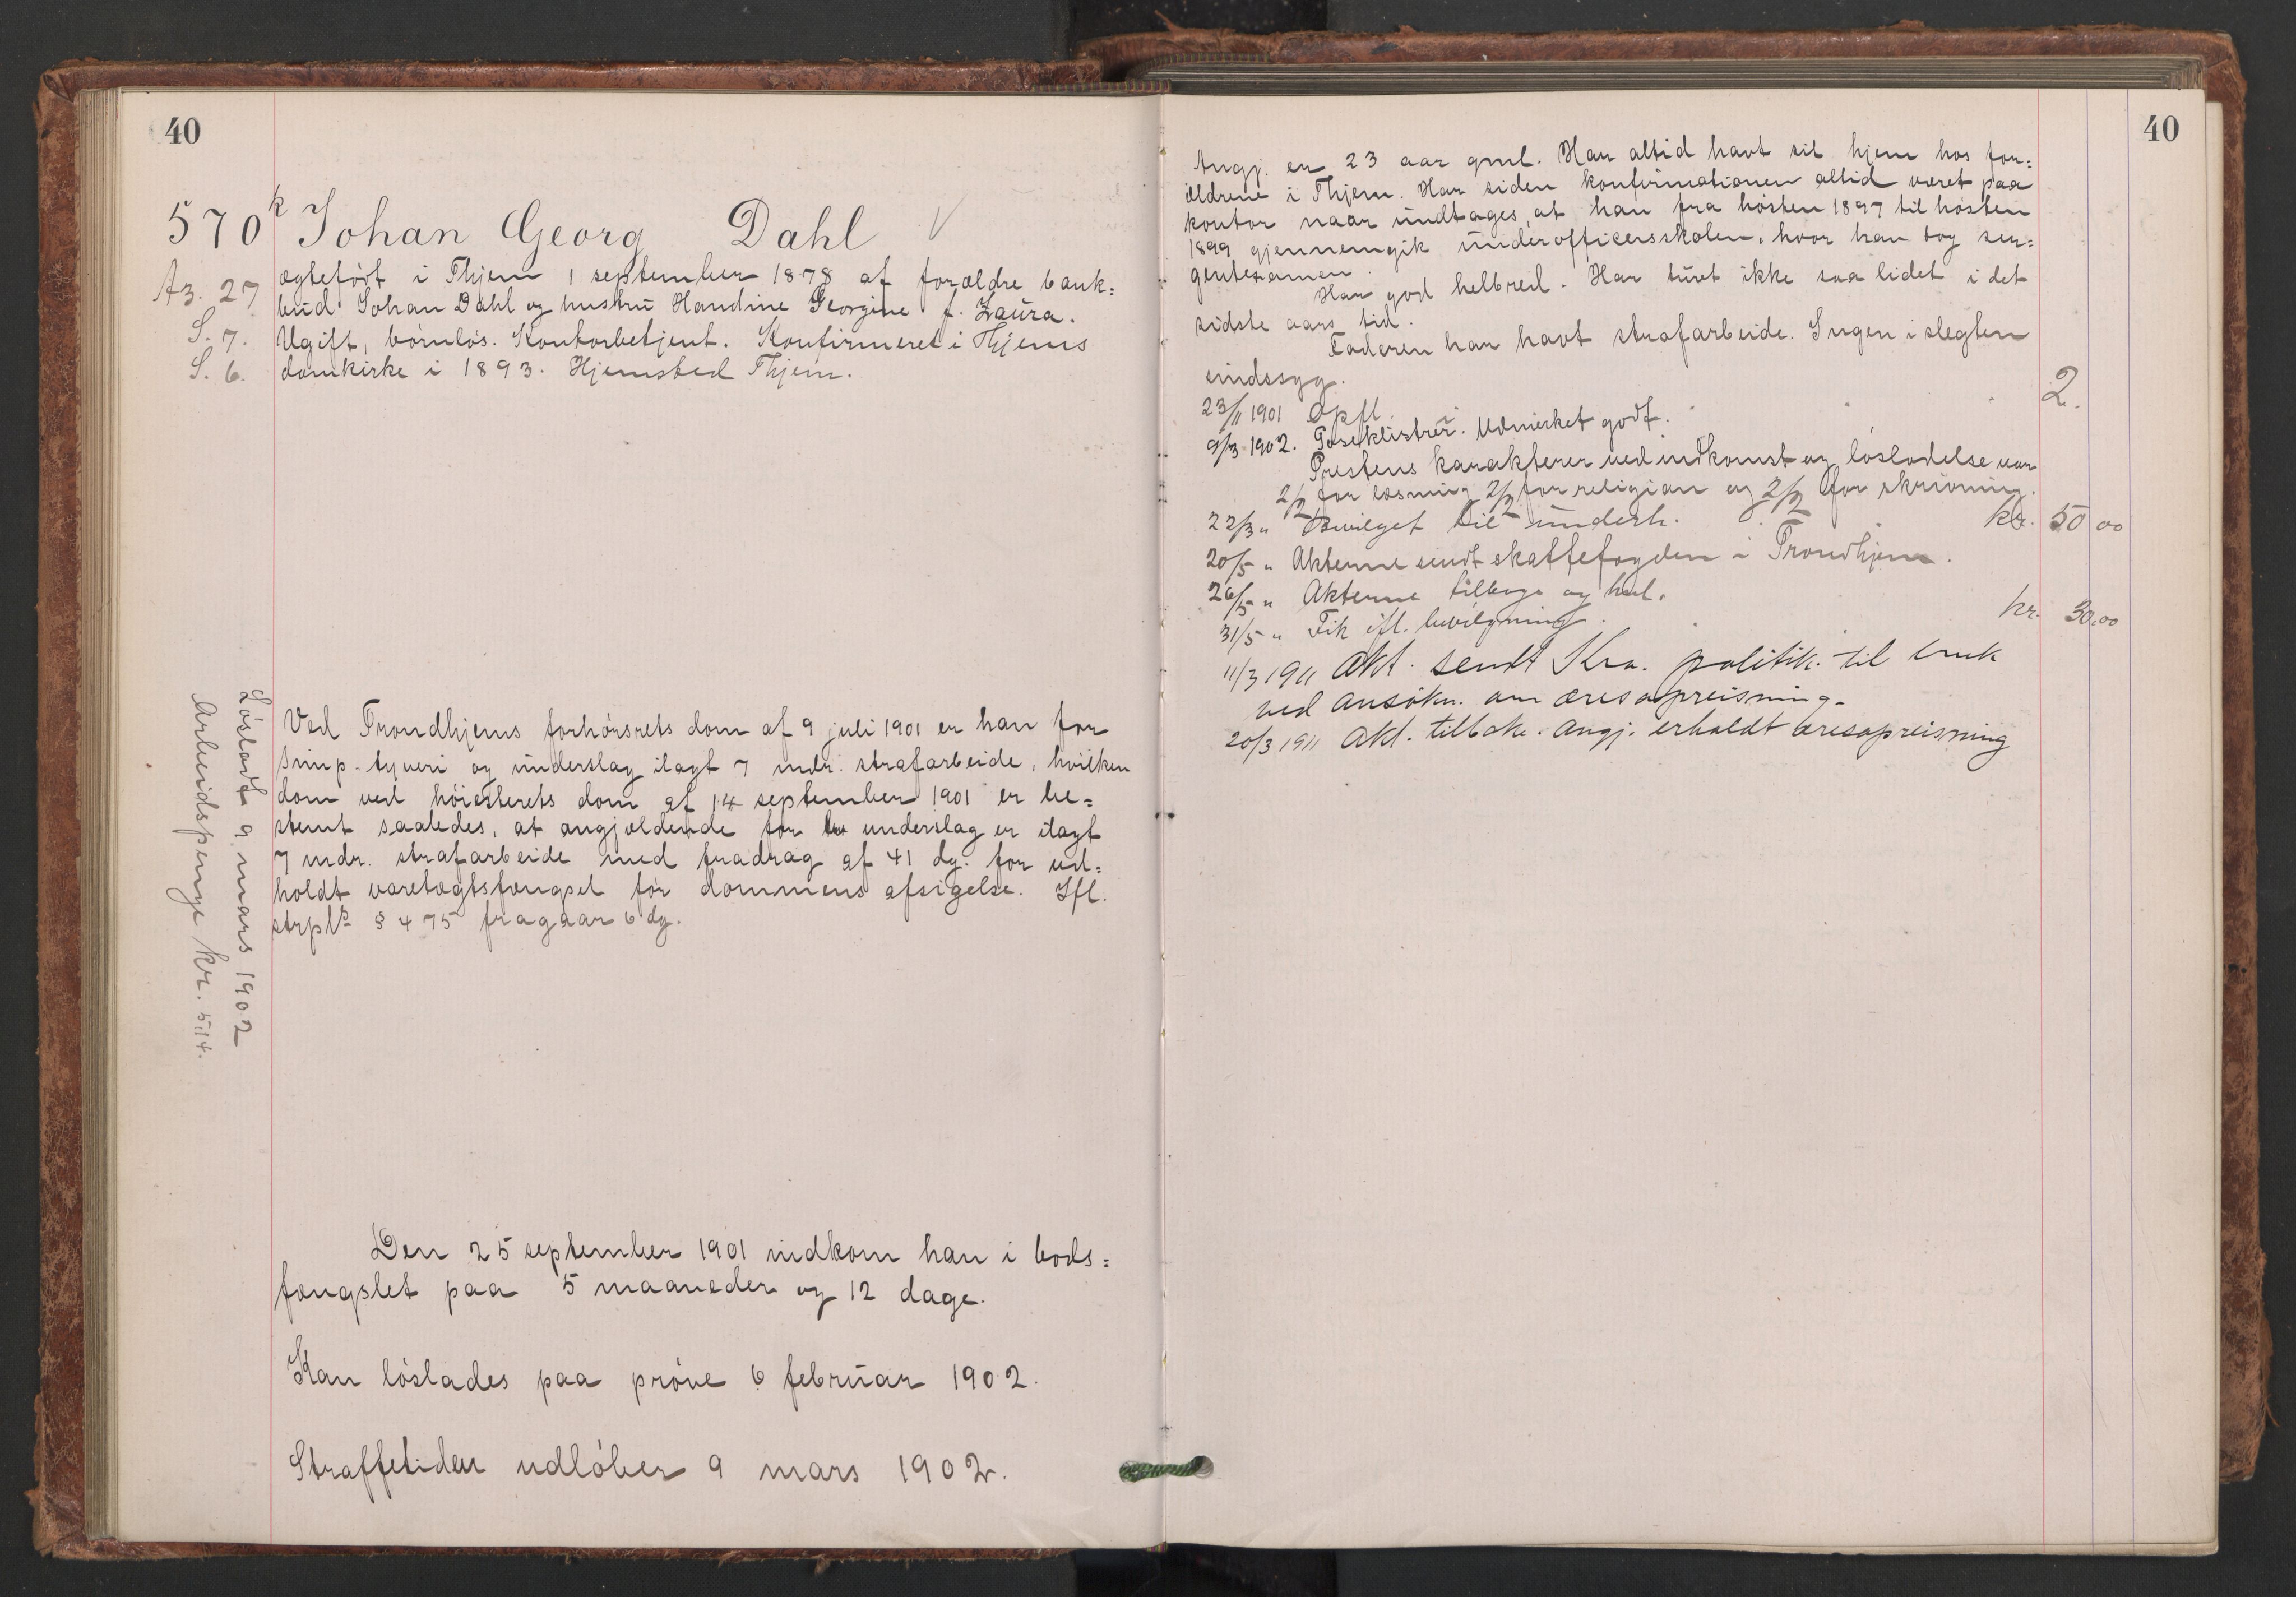 40
570 k Johan Georg Dahl V
Az. 27
S. 7.
S. 6.
ægtefødt i Thjem 1 september 1878 af forældre bank=
bud Johan Dahl og hustru Handine Georgine f. Zaura.
Ugift, børnløs. Kontorbetjent. Konfirmeret i Thjems
domkirke i 1893. Hjemsted Thjem.
Løsladt 9 mars 1902
Arbeidspenge kr. 5,14.
Ved Trondhjems forhørsrets dom af 9 juli 1901 er han for
simp. tyveri og underslag ilagt 7 mdr. strafarbeide, hvilken
dom ved høiesterets dom af 14 september 1901 er be=
stemt saaledes, at angjældende for underslag er ilagt
7 mdr. strafarbeide med fradrag af 41 dg. for ud=
holdt varetægtsfængsel før dommens afsigelse. Ifl.
strpls § 475 fragaar 6 dg.
Den 25 september 1901 indkom han i bods=
fængslet paa 5 maaneder og 12 dage.
Kan løslades paa prøve 6 februar 1902.
Straffetiden udløber 9 mars 1902.
40
Angj. er 23 aar gml. Har altid havt sit hjem hos for=
ældrene i Thjem. Har siden konfirmationen altid været paa
kontor naar undtages, at han fra høsten 1897 til høsten
1899 gjennemgik underofficersskolen, hvor han tog ser=
gentexamen.
Har god helbred. Har turet ikke saa lidet i det
sidste aars tid.
Faderen har havt strafarbeide. Ingen i slegten
sindssyg.
23/11 1901 Opfl. 2.
9/3 1902. Poseklistrer. Udmerket godt.
Prestens karakterer ved indkomst og løsladelse var
2/2 for læsning 2/2 for religion og 2/2 for skrivning.
22/3 " Bevilget til underh. kr. 50 00
20/5 " Akterne sendt skattefogden i Trondhjem.
26/5 " Akterne tilbage og hul.
31/5 " Fik ifl. bevilgning. kr. 30.00
11/3 1911 Akt. sendt Kra. politik. til bruk
ved ansøkn. om æresopreisning.
20/3 1911 Akt. tilbake. Angj. erholdt æresopreisning